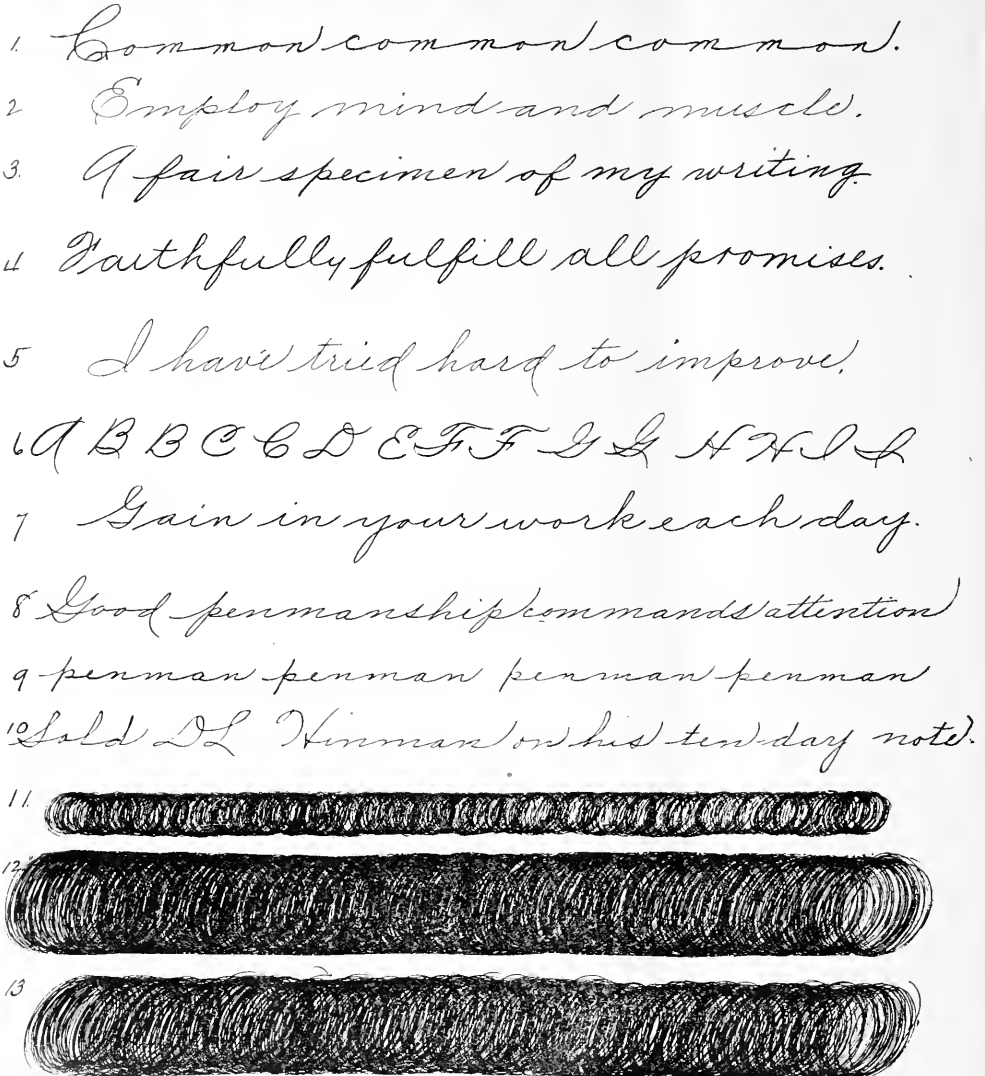 1. Common common common.
2 Employ mind and muscle.
3. A fair specimen of my writing.
4 Faithfully fulfill all promises.
5 I have tried hard to improve.
6 A B B C C D E F F G G H H I I
7 Gain in your work each day.
8 Good penmanship commands attention
9 penman penman penman penman
10 Sold D L Hinman on his ten day note.
11.
12
13